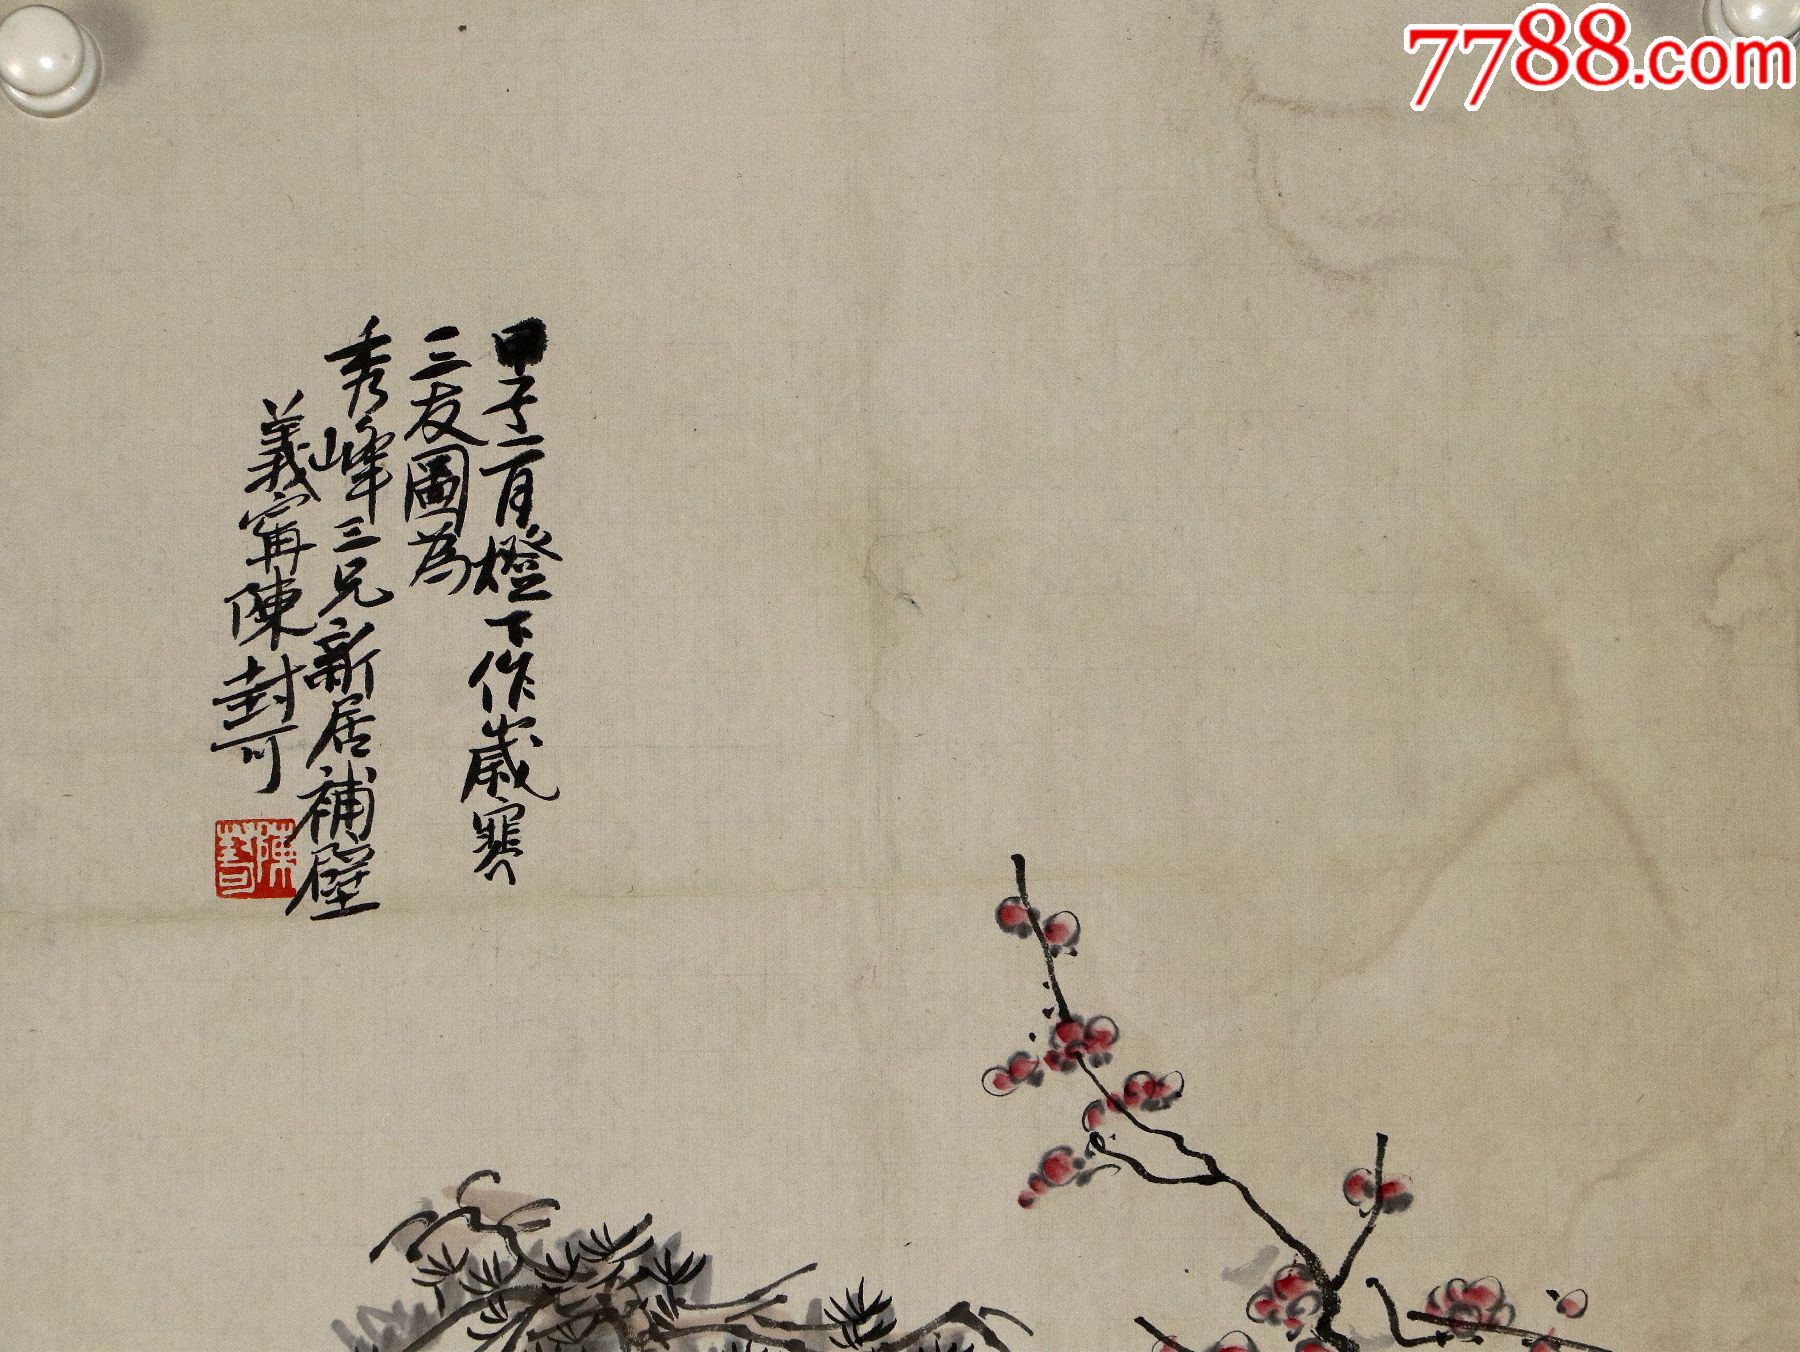 7788.com
甲子二月燈下作歲寒
三友圖為
秀峰三兄新居補壁
義甯陳封可
陳封可